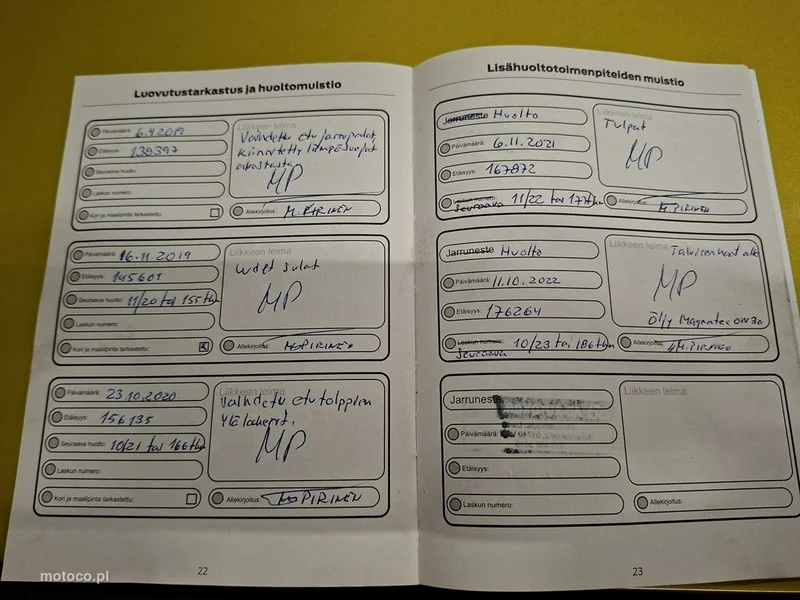 Luovutustarkastus ja huoltomuistio
Päivämäärä: 6.4.2019
Etäisyys: 139397
Seuraava huolto:
Laskun numero:
Kori ja maalipinta tarkastettu:
Liikkeen leima
Vaihdettu etu jarrupalat,
kiinnitetty lämpösuojat
alustasta
MP
Allekirjoitus: M.PIRINEN
Päivämäärä: 16.11.2019
Etäisyys: 145601
Seuraava huolto: 11/20 tai 155tkm
Laskun numero:
Kori ja maalipinta tarkastettu:
Liikkeen leima
Uudet sulat
MP
Allekirjoitus: M.PIRINEN
Päivämäärä: 23.10.2020
Etäisyys: 156135
Seuraava huolto: 10/21 tai 166tkm
Laskun numero:
Kori ja maalipinta tarkastettu:
Liikkeen leima
Vaihdettu etutolppien
YLÄlaakerit.
MP
Allekirjoitus: M.PIRINEN
22
Lisähuoltotoimenpiteiden muistio
Jarruneste Huolto
Päivämäärä: 6.11.2021
Etäisyys: 167872
Laskun numero:
Seuraava 11/22 tai 177tkm
Liikkeen leima
Tulpat
MP
Allekirjoitus: M.PIRINEN
Jarruneste Huolto
Päivämäärä: 11.10.2022
Etäisyys: 176264
Laskun numero:
Seuraava 10/23 tai 186tkm
Liikkeen leima
MP
Öljy Magnatec 0W30
Allekirjoitus: M.PIRINEN
Jarruneste
Päivämäärä:
Etäisyys:
Laskun numero:
Liikkeen leima
Allekirjoitus:
23
motoco.pl